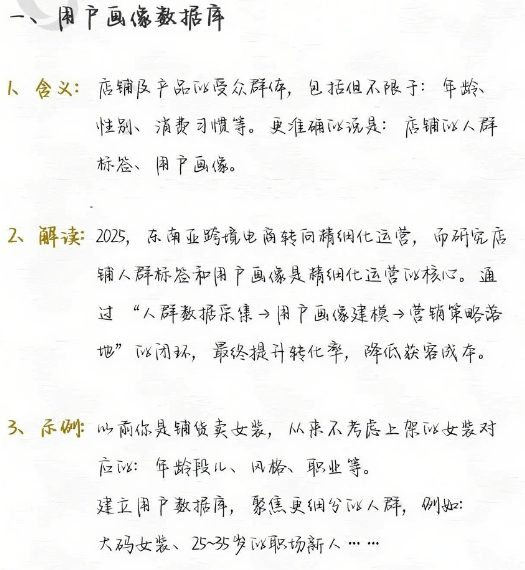 一、用户画像数据库
1、含义：店铺及产品的受众群体，包括但不限于：年龄、
性别、消费习惯等。更准确的说是：店铺的人群
标签、用户画像。
2、解读：2025，东南亚跨境电商转向精细化运营，而研究店
铺人群标签和用户画像是精细化运营的核心。通
过“人群数据采集→用户画像建模→营销策略落
地”的闭环，最终提升转化率，降低获客成本。
3、示例：以前你是铺货卖女装，从来不考虑上架的女装对
应的：年龄段儿、风格、职业等。
建立用户数据库，聚焦更细分的人群，例如：
大码女装、25~35岁的职场新人……